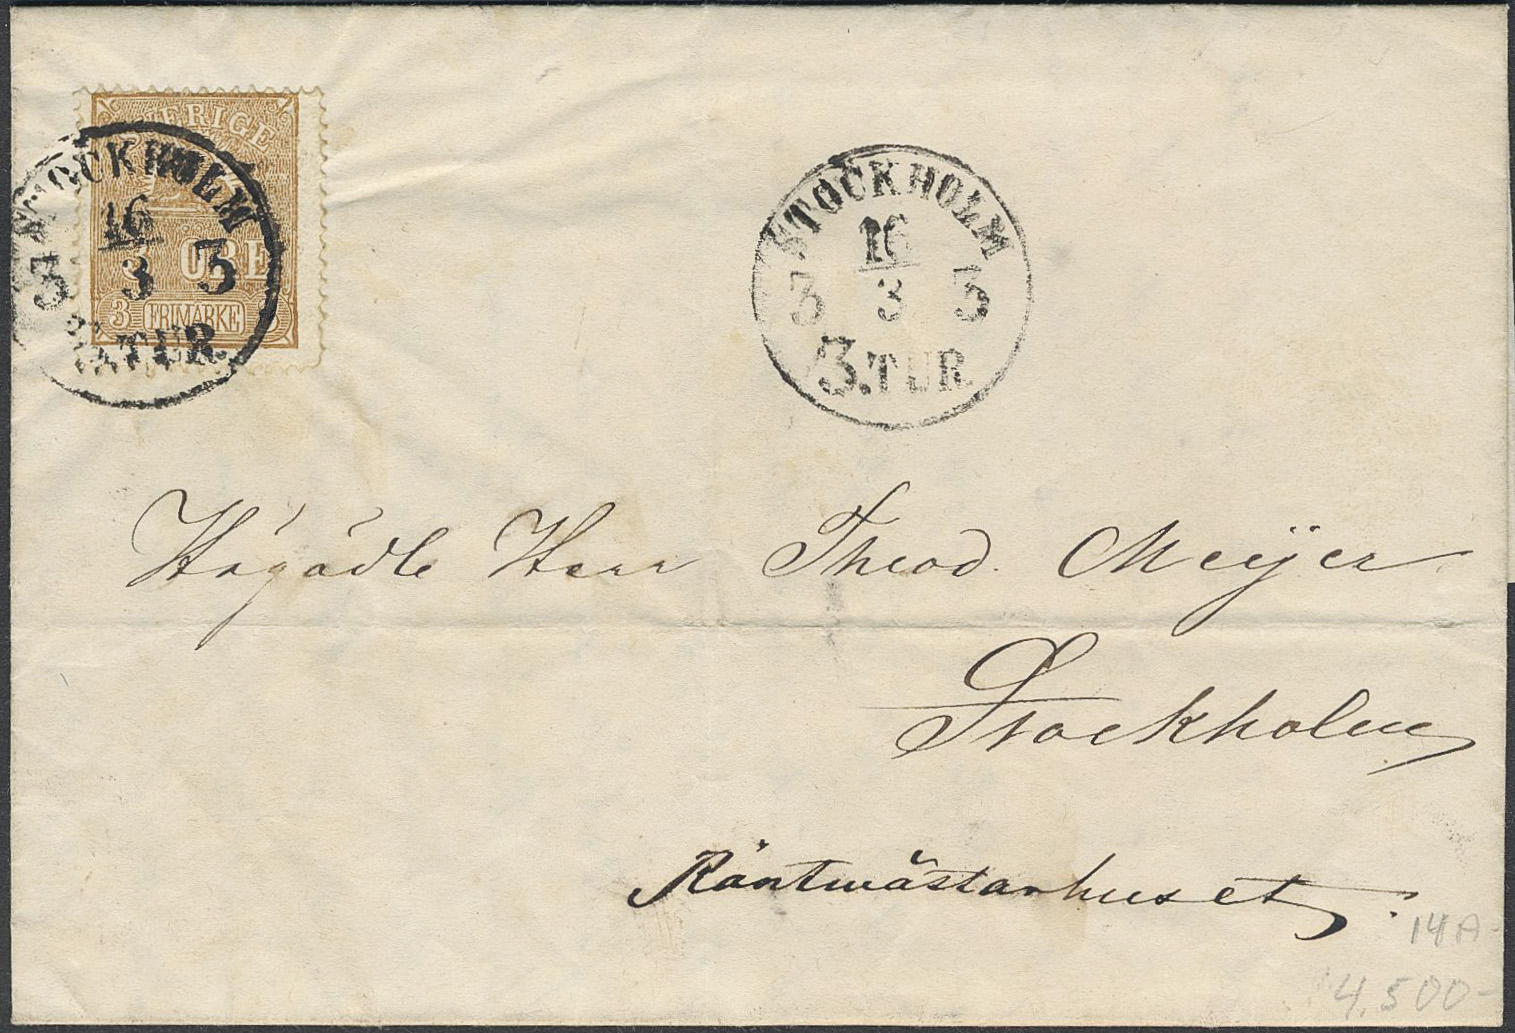 SVERIGE
3
ÖRE
3 FRIMÄRKE 3
STOCKHOLM
16
3 3 3
TUR.
STOCKHOLM
16
3 3 3
3.TUR
Högädle Herr Theod. Meijer
Stockholm
Räntmästarhuset.
14A-
4.500-